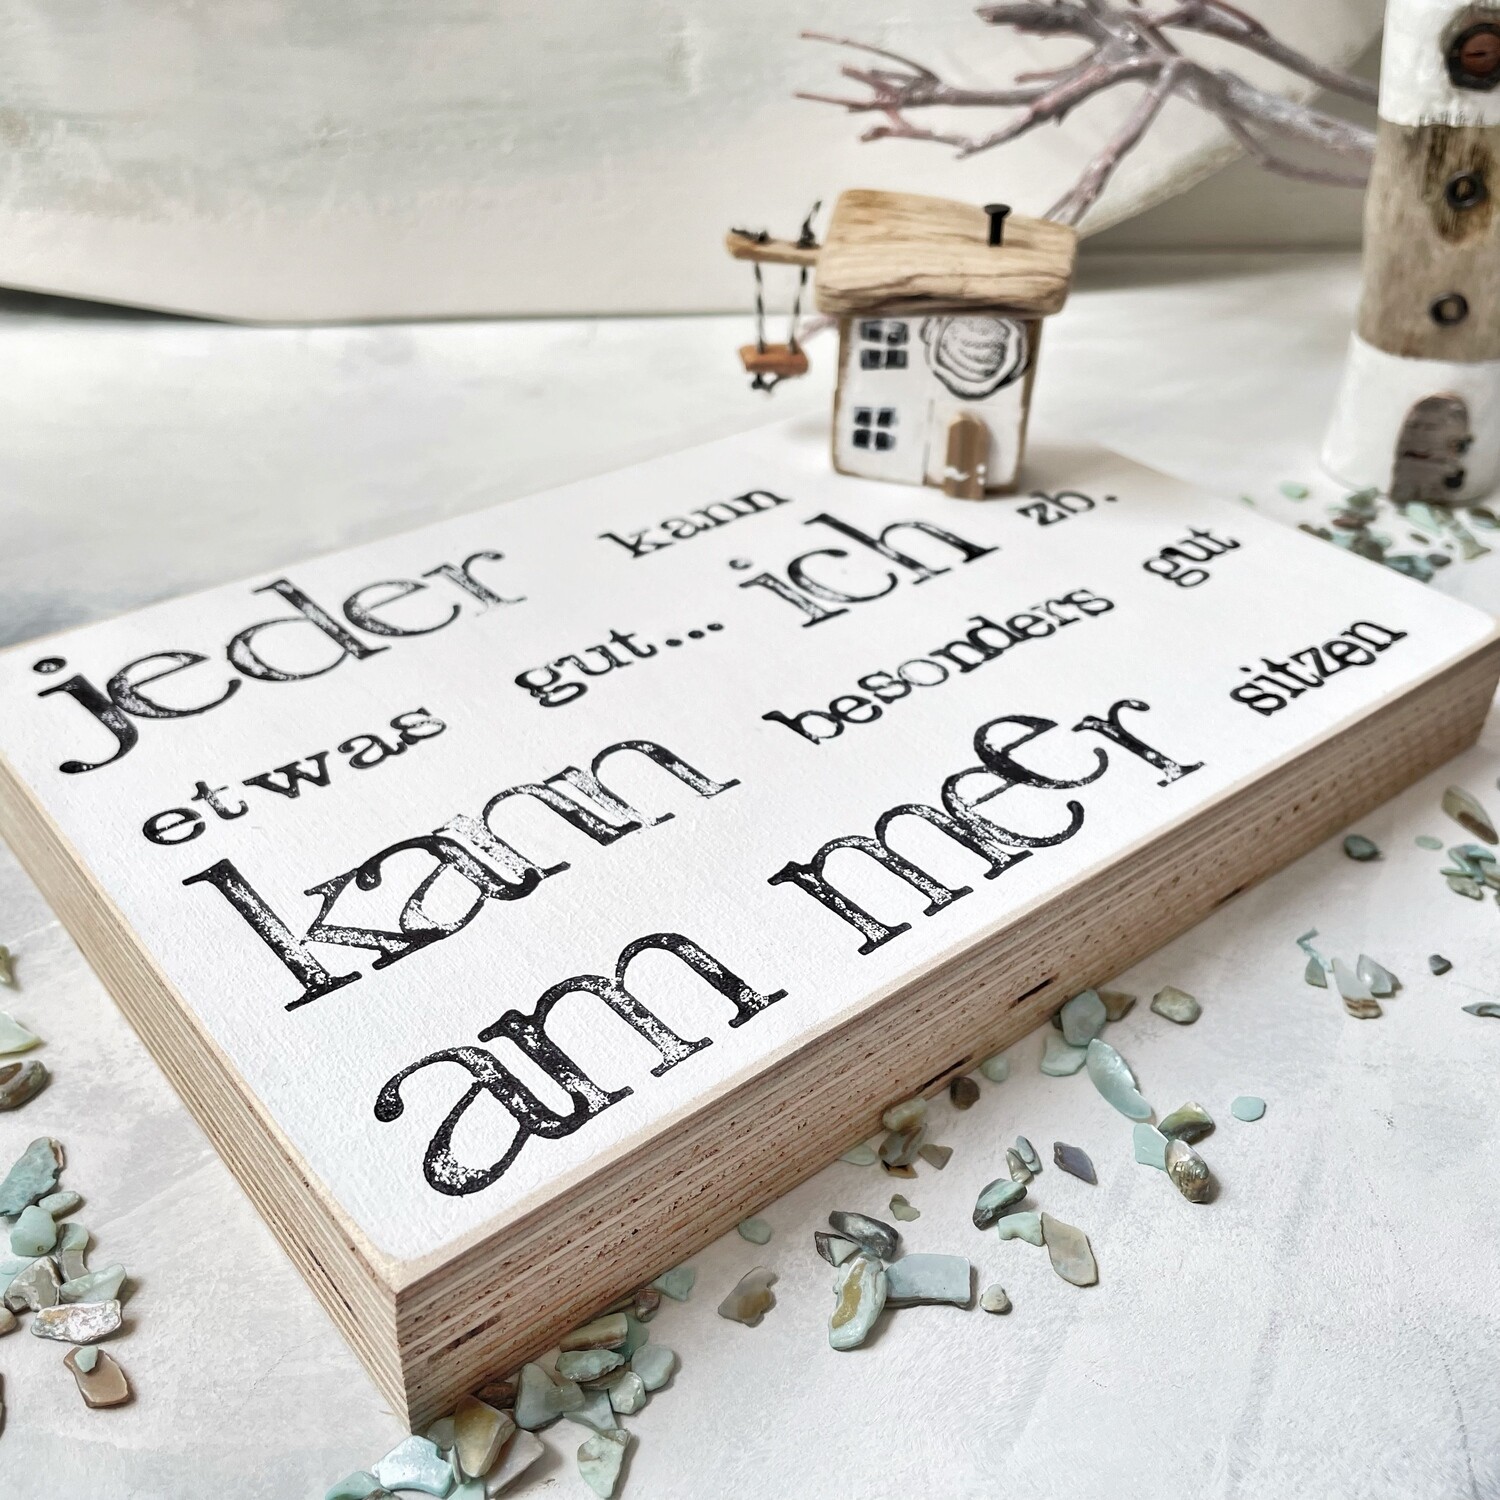 jeder kann
etwas gut... ich zb.
kann besonders gut
am meer sitzen